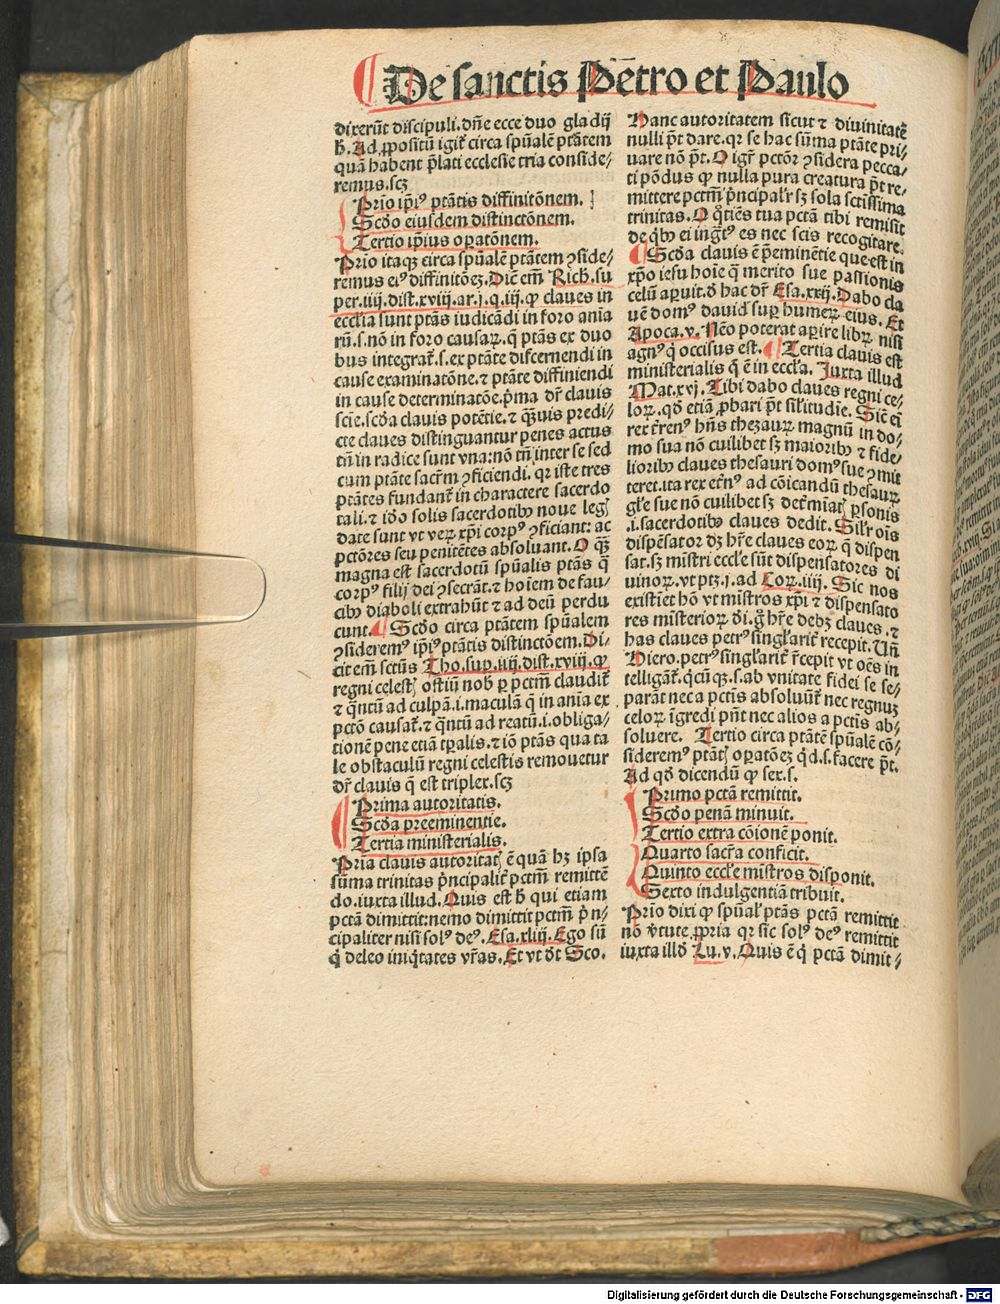 De sanctis Petro et Paulo
dixerūt discipuli. dn̄e ecce duo gladij
h̄. Ad ꝓpositū igit̄ circa spūalē ptātem
quā habent p̄lati ecclesie tria conside⸗
remus. scꝫ
Prio ip̄iꝰ ptātis diffinitōnem.
Scd̄o eiusdem distinctōnem.
Tertio ip̄ius oꝑatōnem.
Prio itaqꝫ circa spūalē ptātem ꝯside⸗
remus eiꝰ diffinitōeꝫ. Dic̄ em̄ Rich. su
per .iiij. dist. xviij. ar. j. q. iij. ꝙ claues in
ecclīa sunt ptās iudicādi in foro anīa
rū. s. nō in foro causaꝝ. q̄ ptās ex duo
bus integrat̄. s. ex ptāte discernendi in
cause examinatōne. ⁊ ptāte diffiniendi
in cause determinatōe. p̄ma dr̄ clauis
scīe. scd̄a clauis potētie. ⁊ qꝫuis predi⸗
cte claues distinguantur penes actus
tn̄ in radice sunt vna: nō tn̄ inter se sed
cum ptāte sacr̄m ꝯficiendi. qr iste tres
ptātes fundant̄ in charactere sacerdo
tali. ⁊ iō solis sacerdotibꝫ noue legꝭ
date sunt vt veꝝ xp̄i corpꝰ ꝯficiant: ac
pctōres seu penitētes absoluant. O qꝫ
magna est sacerdotū spūalis ptās q̄
corpꝰ filij dei ꝯsecrāt. ⁊ hoīem de fau⸗
cibꝫ diaboli extrahūt ⁊ ad deū perdu
cunt. Scd̄o circa ptātem spūalem
ꝯsideremꝰ ip̄iꝰ ptātis distinctōem. Di⸗
cit em̄ sctūs Tho. suꝑ .iiij. dist. xviij. ꝙ
regni celestꝭ ostiū nob̄ ꝑ pctm̄ claudit̄
⁊ q̄ntū ad culpā. i. maculā q̄ in anīa ex
pctō causat̄. ⁊ q̄ntū ad reatū. i. obliga⸗
tionē pene etiā tꝑalis. ⁊ iō ptās qua ta
le obstaculū regni celestis remouetur
dr̄ clauis q̄ est triplex. scꝫ
Prima autoritatis.
Scd̄a preeminentie.
Tertia ministerialis.
Prīa clauis autoritatꝭ ē quā hꝫ ipsa
sūma trinitas p̄ncipalit̄ pctm̄ remittē
do. iuxta illud. Quis est h̄ qui etiam
pctā dimittit: nemo dimittit pctm̄ p̄n⸗
cipaliter nisi solꝰ deꝰ. Esa. xliij. Ego sū
q̄ deleo iniq̄tates vr̄as. Et vt dt̄ Sco.
Hanc autoritatem sicut ⁊ diuinitatē
nulli pt̄ dare. qr se hac sūma ptāte pri⸗
uare nō pt̄. O igr̄ pctōr ꝯsidera pecca⸗
ti pōdus ꝙ nulla pura creatura pt̄ re⸗
mittere pctm̄ p̄ncipalr̄ sꝫ sola sctissima
trinitas. O q̄tiēs tua pctā tibi remisit
de q̄bꝫ ei ingr̄tꝰ es nec scis recogitare.
Scd̄a clauis ē p̄eminētie que est in
xp̄o iesu hoīe q̄ merito sue passionis
celū aꝑuit. d̄ hac dr̄ Esa. xxij. Dabo cla
uē domꝰ dauid suꝑ humeꝝ eius. Et
Apoca. v. Nēo poterat aꝑire libꝝ nisi
agnꝰ q̄ occisus est. Tertia clauis est
ministerialis q̄ ē in eccl̄a. Juxta illud
Mat. xvj. Tibi dabo claues regni ce⸗
loꝝ. qd̄ etiā ꝓbari pt̄ sil̄itudīe. Sic̄ ei
rex t̄renꝰ hn̄s thezauꝝ magnū in do⸗
mo sua nō cuilibet sꝫ maioribꝫ ⁊ fide⸗
lioribꝫ claues thesauri domꝰ sue ꝯmit
teret. ita rex et̄nꝰ ad cōicandū thesauꝝ
gl̄e sue nō cuilibet sꝫ det̄miatꝭ ꝑsonis
.i. sacerdotibꝫ claues dedit. Sil̄r oīs
dispēsator dꝫ hr̄e claues eoꝝ q̄ dispen
sat. sꝫ mīstri eccl̄e sūt dispensatores di
uinoꝝ. vt ptꝫ .j. ad Coꝝ. iiij. Sic nos
existīet hō vt mīstros xp̄i ⁊ dispensato
res misterioꝝ dī. gͦ hr̄e debꝫ claues. ⁊
has claues petrꝰ singl̄arit̄ recepit. Un̄
Hiero. petrꝰ singl̄arit̄ r̄cepit vt oēs in
telligāt̄. q̄cūqꝫ. s. ab vnitate fidei se se⸗
parāt nec a pctīs absoluūt̄ nec regnuꝫ
celoꝝ īgredi pn̄t nec alios a pctīs ab⸗
soluere. Tertio circa ptātē spūalē cō⸗
sideremꝰ ptātꝭ oꝑatōeꝫ qͥd. s. facere pt̄.
Ad qd̄ dicendū ꝙ sex. s.
Primo pctā remittit.
Scd̄o penā minuit.
Tertio extra cōionē ponit.
Quarto sacr̄a conficit.
Quinto eccl̄e mīstros disponit.
Sexto indulgentiā tribuit.
Prīo dixi ꝙ spūalꝭ ptās pctā remittit
nō v̄tute ꝓpria qr sic solꝰ deꝰ remittit
iuxta illd̄ Lu. v. Quis ē q̄ pctā dimit⸗
Digitalisierung gefördert durch die Deutsche Forschungsgemeinschaft - DFG